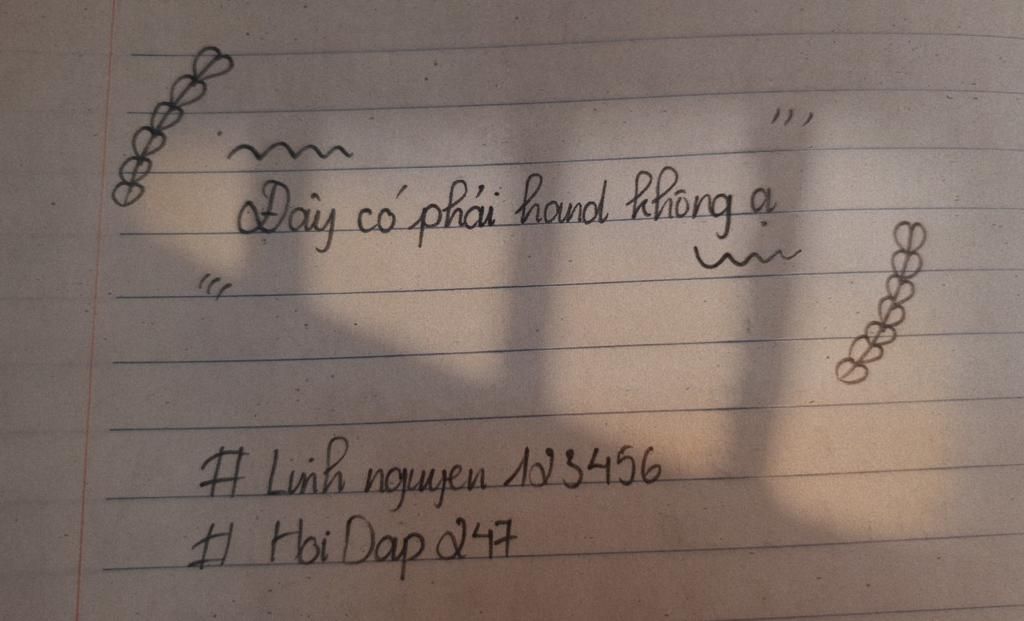 Đây có phải hand không ạ
# Linh nguyen 123456
# Hoi Dap 247